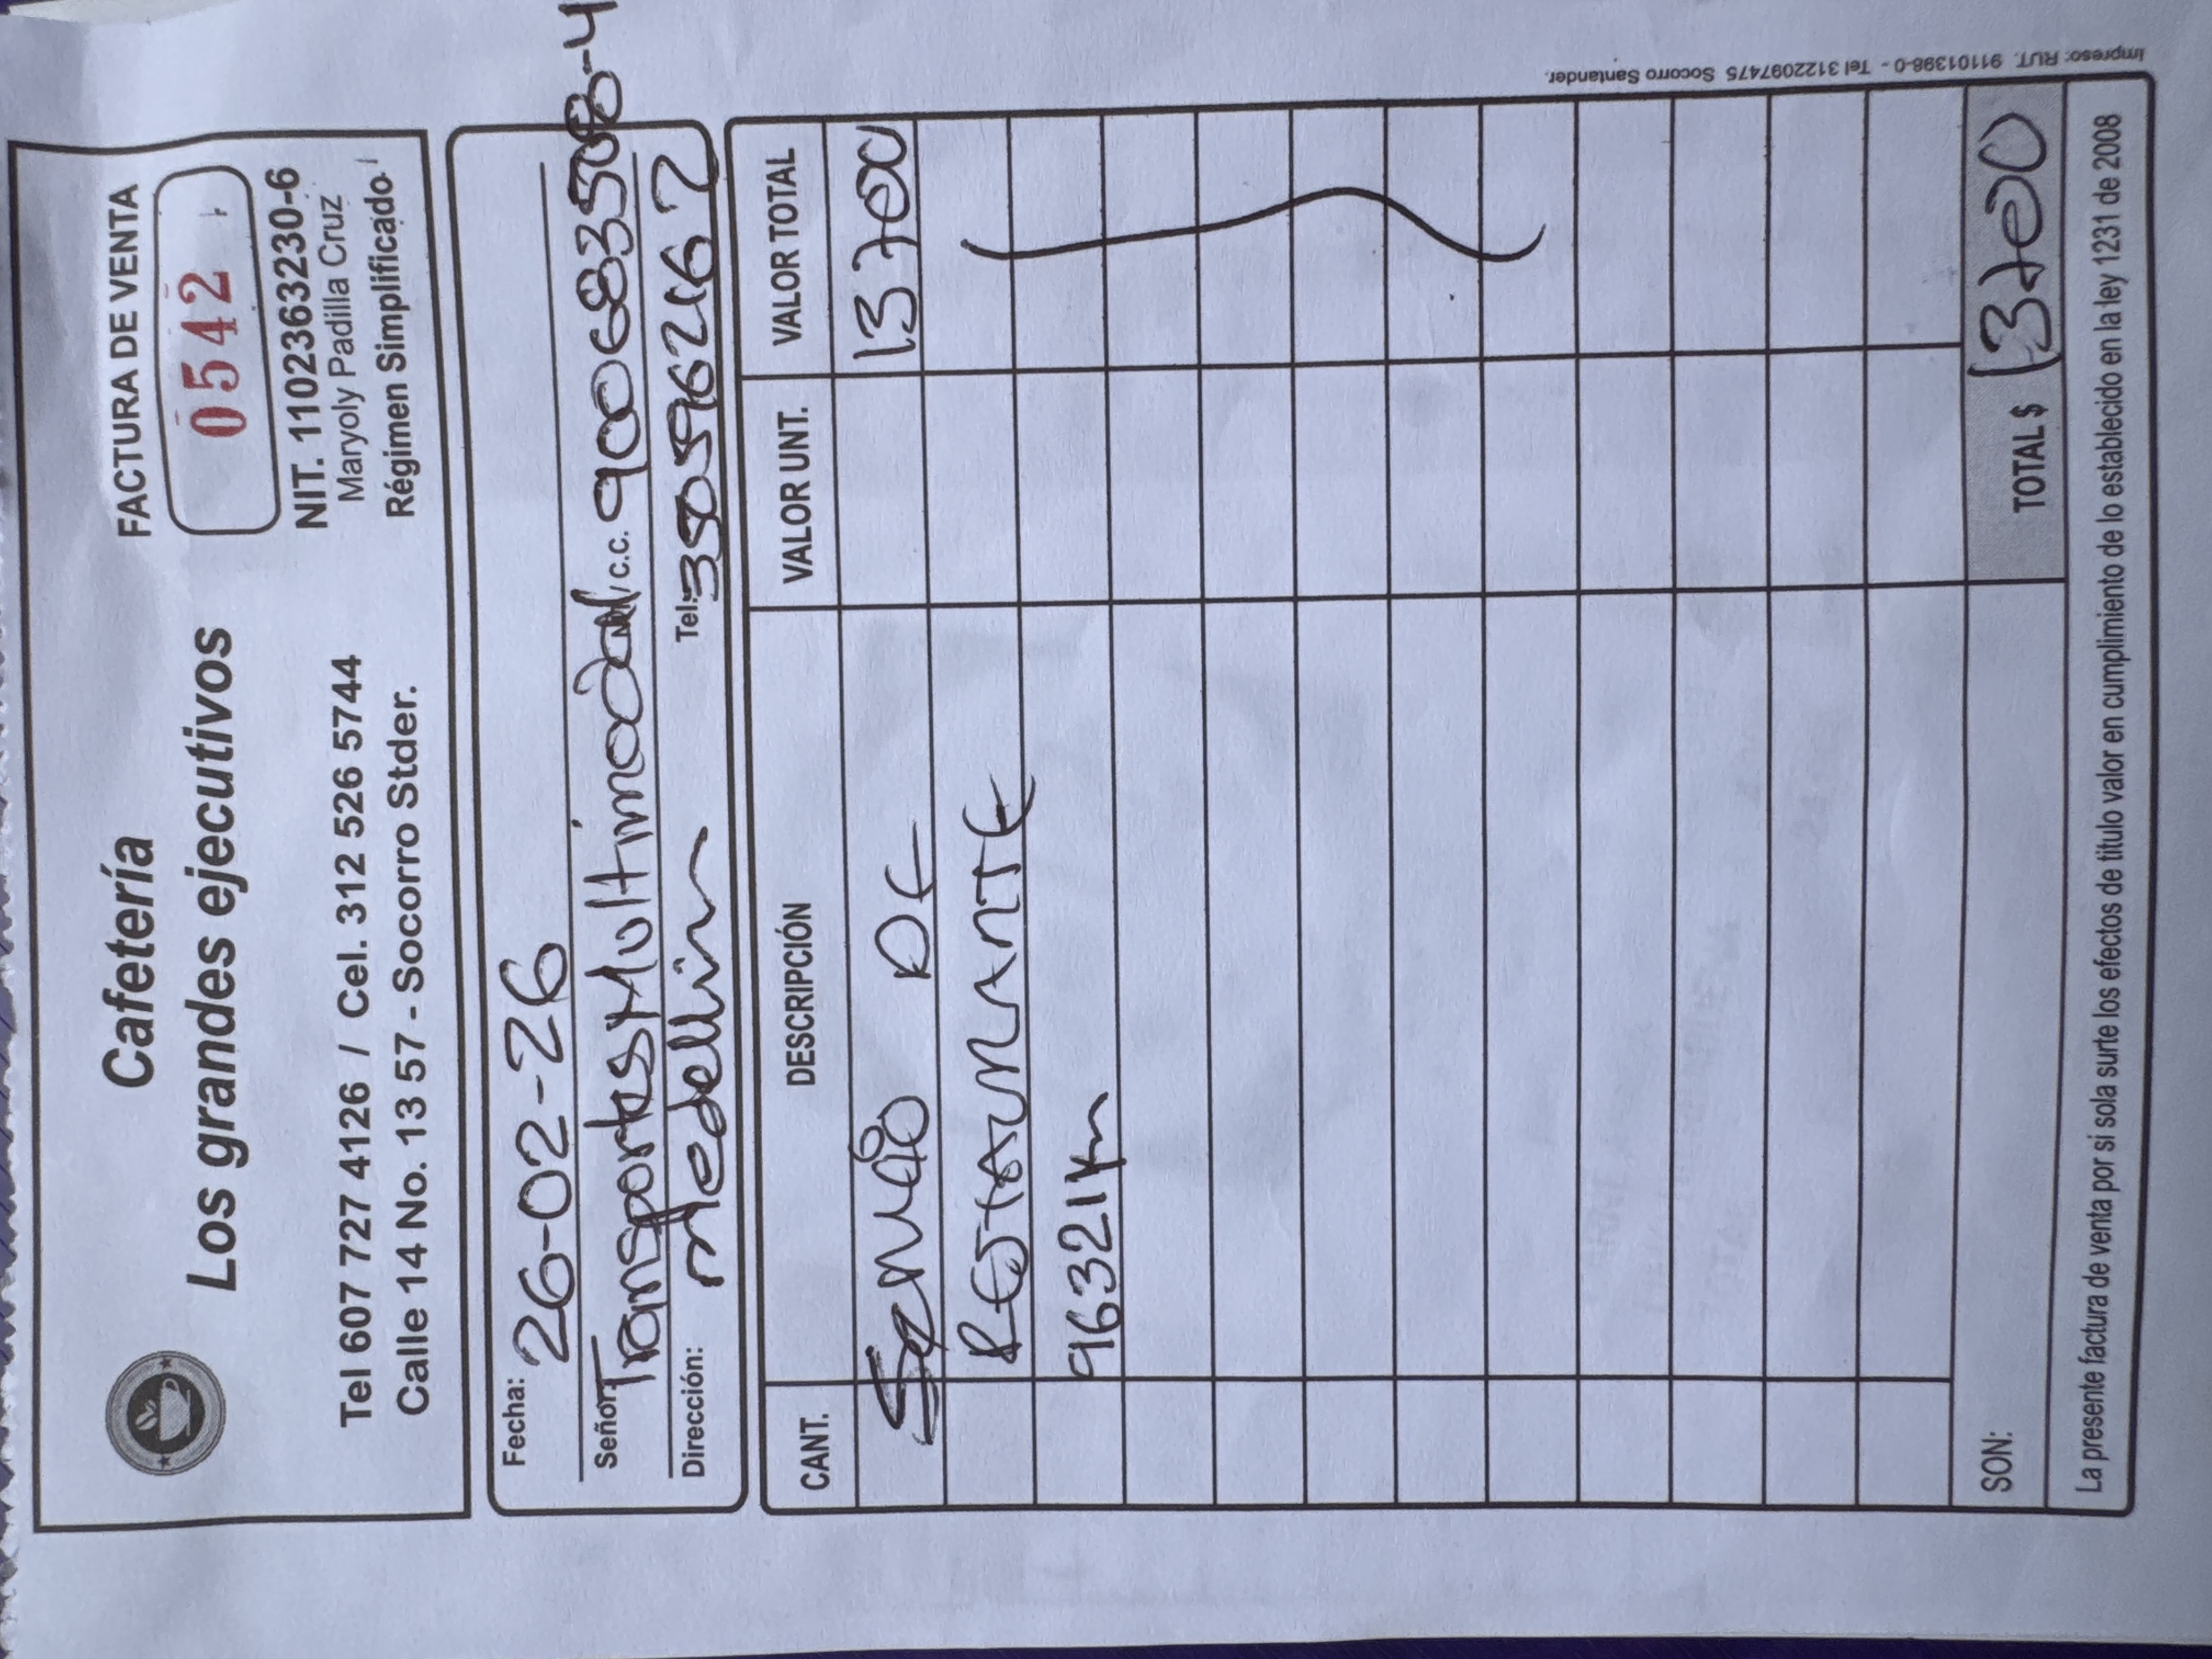 Cafetería
Los grandes ejecutivos
Tel 607 727 4126 / Cel. 312 526 5744
Calle 14 No. 13 57 - Socorro Stder.
FACTURA DE VENTA
0542
NIT. 1102363230-6
Maryoly Padilla Cruz
Régimen Simplificado
Fecha: 26-02-26
Señor: Transportes Multimodal c.c. 900683508-4
Dirección: Medellin Tel.:
CANT. DESCRIPCIÓN VALOR UNT. VALOR TOTAL
Servicio DE 13700
RESTAURANTE
96321km
SON: TOTAL $ 13700
La presente factura de venta por si sola surte los efectos de titulo valor en cumplimiento de lo establecido en la ley 1231 de 2008
Impreso: RUT. 91101398-0 - Tel 3122097475 Socorro Santander.